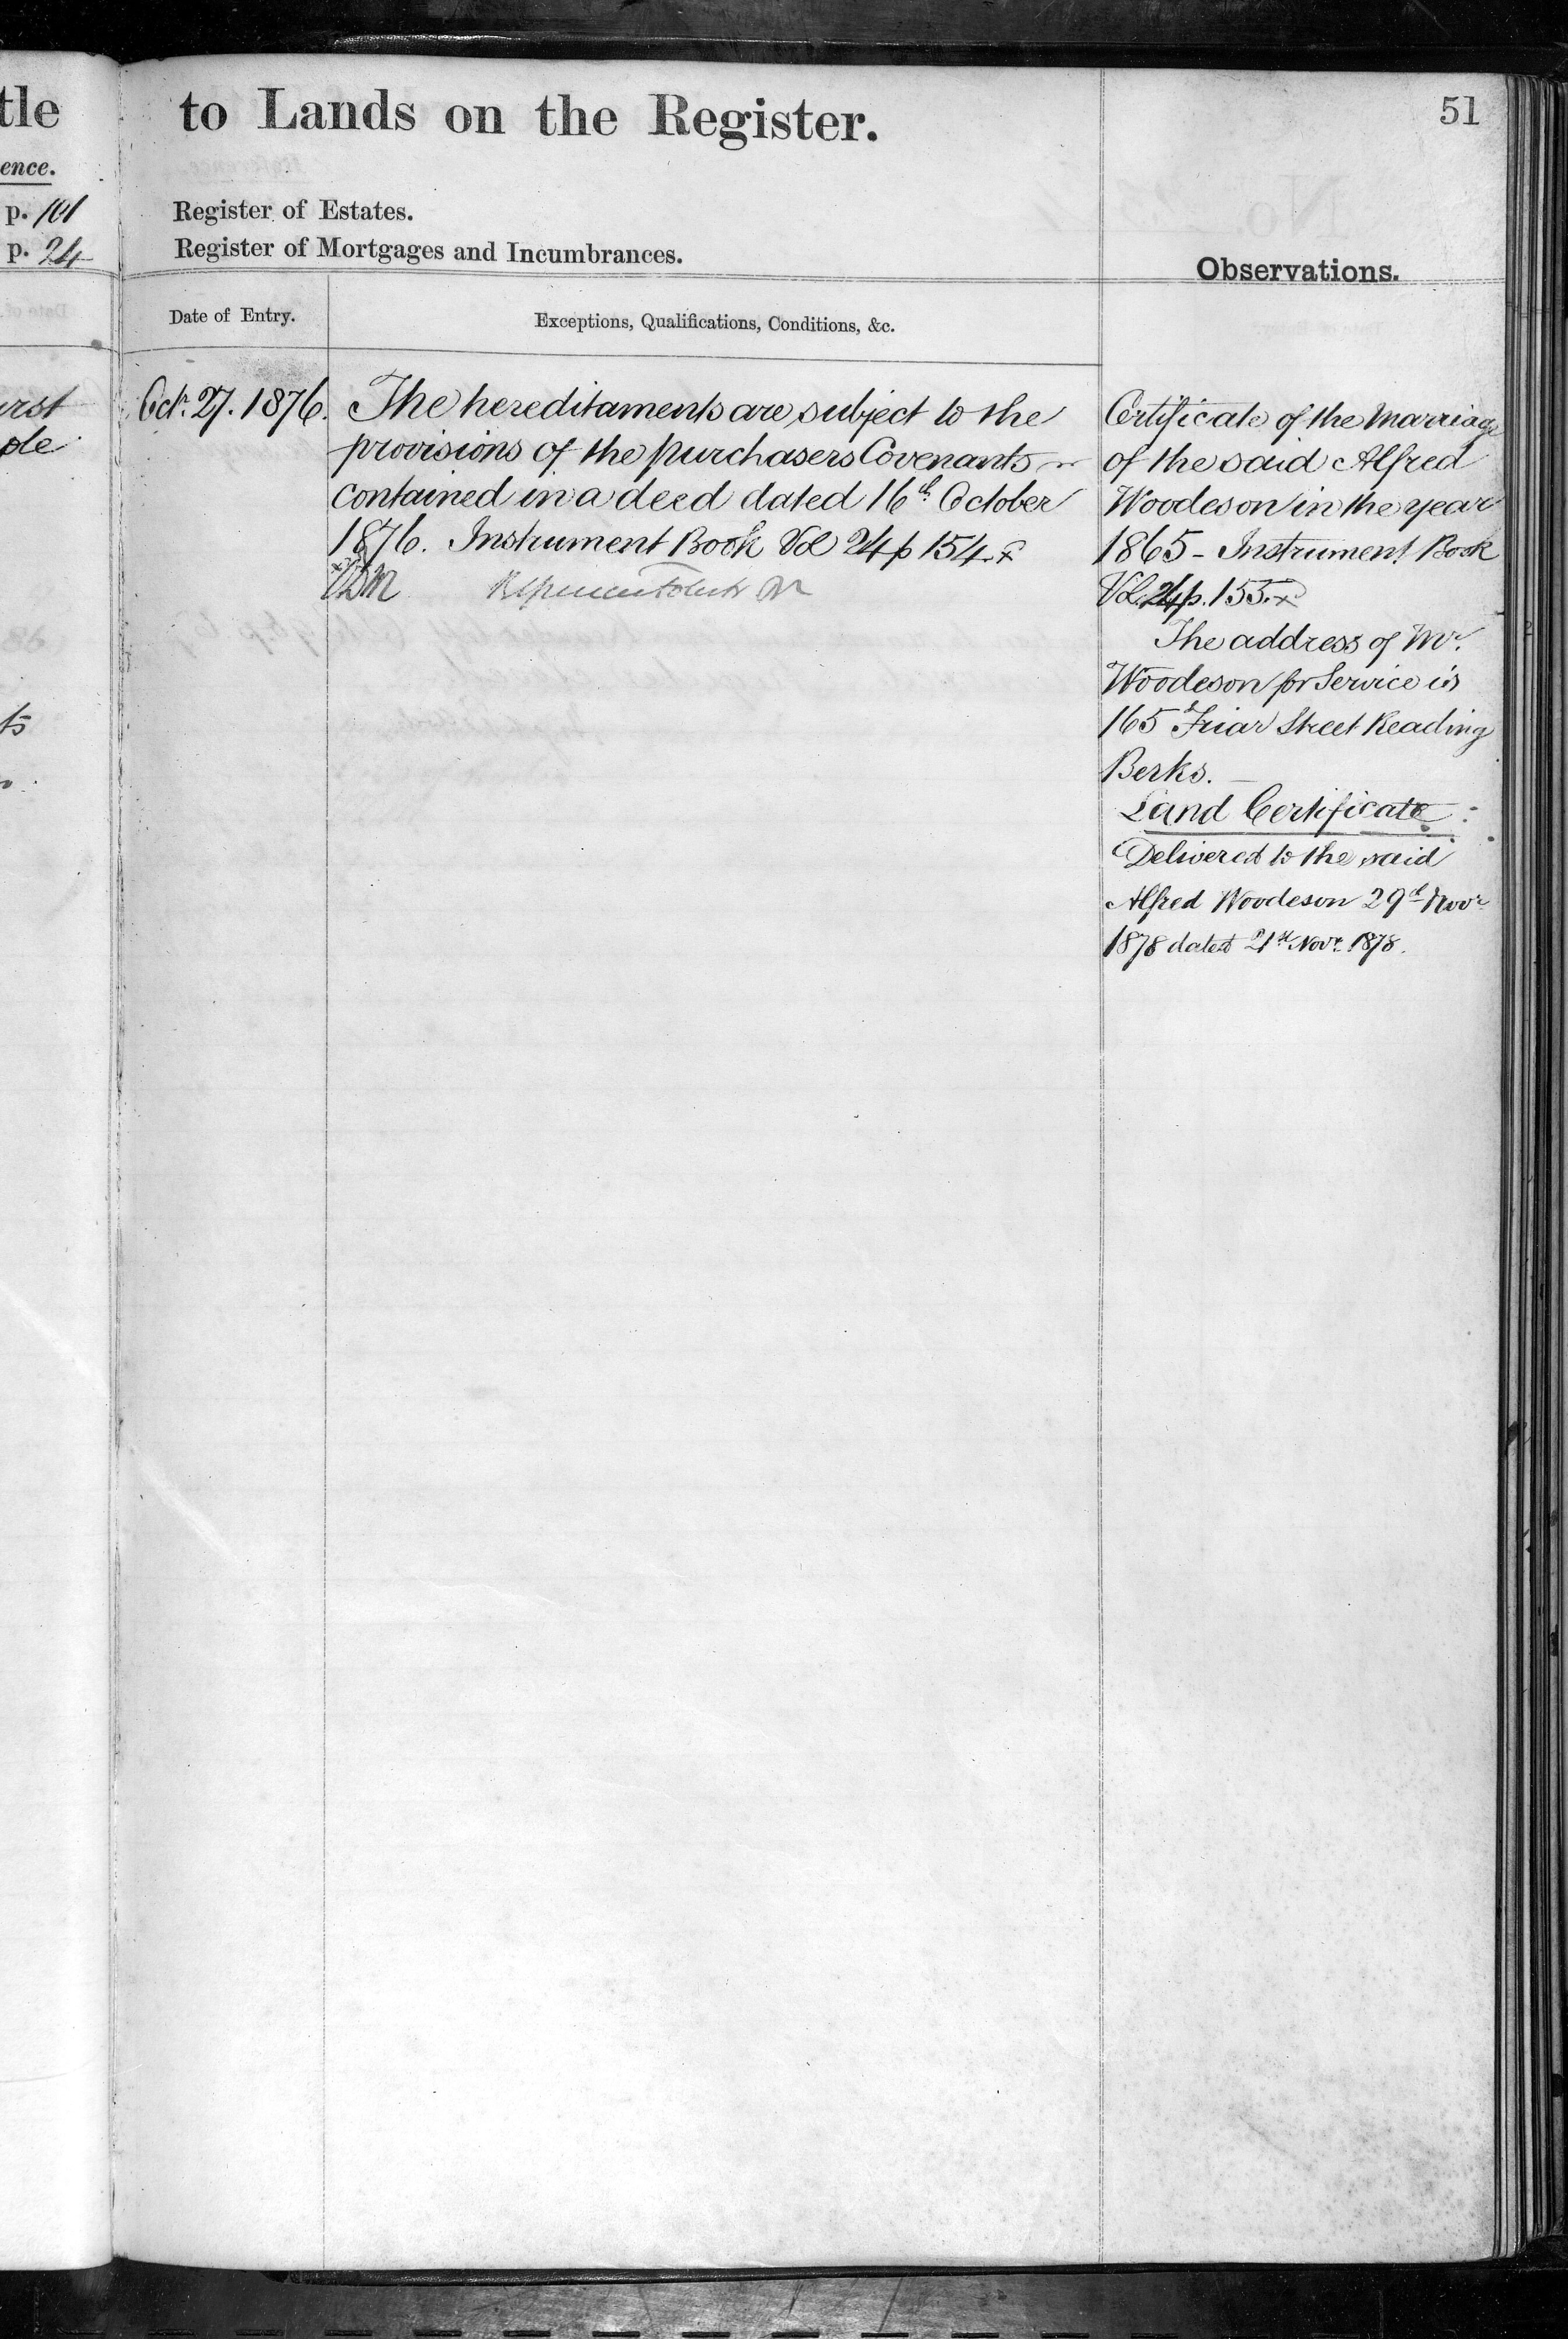 tle
ence.
p. 101
p. 24
to Lands on the Register.
51
Register of Estates.
Register of Mortgages and Incumbrances.
Observations.
Date of Entry.
Exceptions, Qualifications, Conditions, &c.
Octr. 27. 1876.
The hereditaments are subject to the
provisions of the purchasers Covenants
contained in a deed dated 16th October
1876. Instrument Book Vol 24 p 154. x
Certificate of the Marriage
of the said Alfred
Woodeson in the year
1865 - Instrument Book
Vol. 24 p. 155. x
The address of Mr.
Woodeson for Service is
165 Friar Street Reading
Berks.
Land Certificate
Delivered to the said
Alfred Woodeson 29th Novr.
1878 dated 21st Novr. 1878.